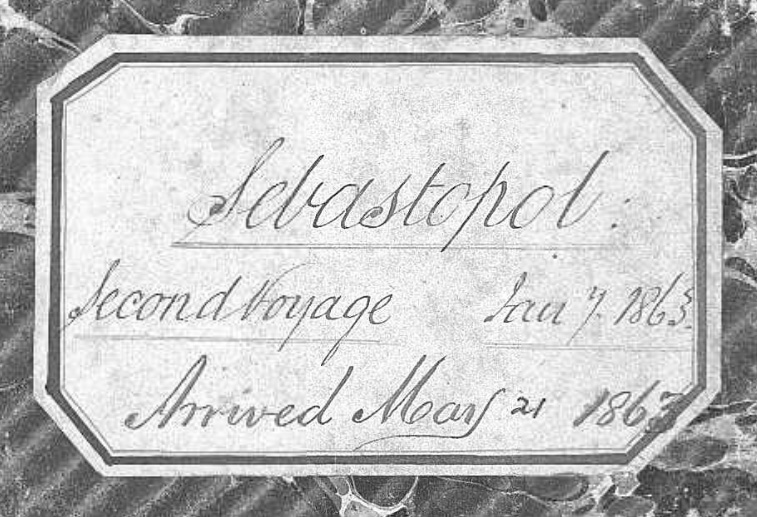 Sebastopol:
Second Voyage Jan 7. 1863.
Arrived May 21 1863